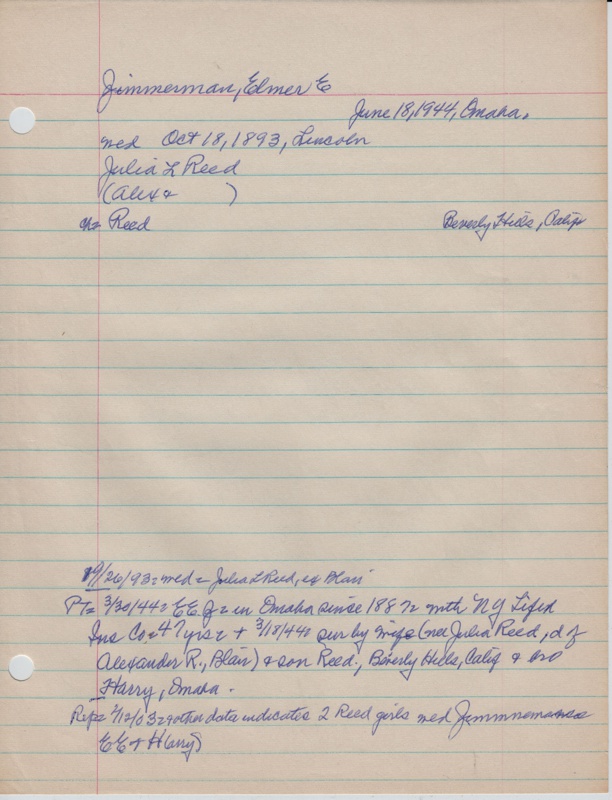 Zimmerman, Elmer E
June 18, 1944, Omaha.
med Oct 18, 1893, Lincoln
Julia L Reed
(Alex & )
n= Reed Beverly Hills, Calif
9/26/93= med = Julia L Reed, of Blair
PT= 3/30/44= E.E. Z = in Omaha since 1887= with NY Life
Ins Co= 47 yrs= + 3/18/44= sur by wife (nee Julia Reed, d of
Alexander R., Blair) & son Reed., Beverly Hills, Calif & bro
Harry, Omaha.
Rep= 1/12/03= other data indicates 2 Reed girls med Zimmermans
EE & Harry)